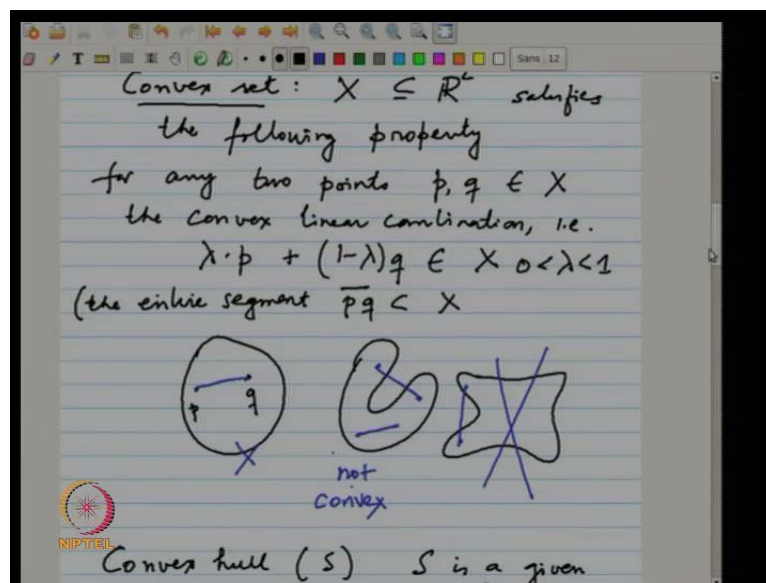 Sans 12
Convex set: X ⊆ ℝ² satisfies
the following property
for any two points p, q ∈ X
the convex linear combination, i.e.
λ·p + (1-λ)q ∈ X 0<λ<1
(the entire segment p̅q̅ ⊂ X
p q
X
not
convex
NPTEL
Convex hull (S) S is a given